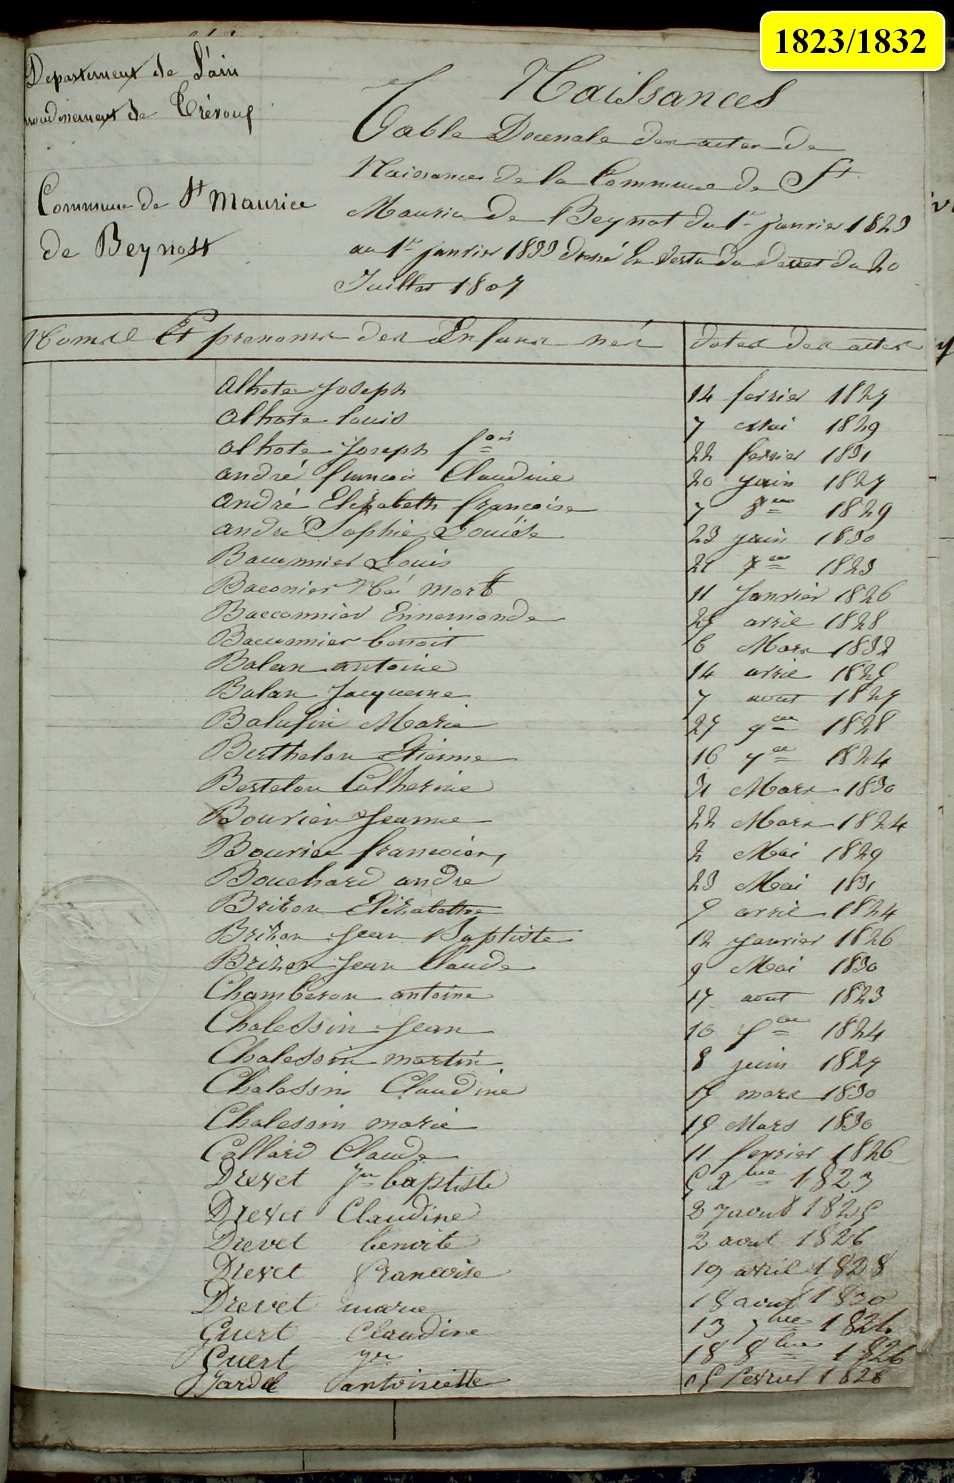 1823/1832
Département de L'ain
arrondissement de Trévoux
Commune de St Maurice
de Beynost
Naissances
Table Décenale des actes de
Naissances de la Commune de St
Maurice de Beynost du 1er janvier 1823
au 1er janvier 1833 dressé En Vertu du décret du 20
Juillet 1807
Noms Et prenoms des Enfans nés dates des actes
alhote Joseph 14 fevrier 1827
alhote louis 7 Mai 1829
alhote Joseph fois 22 fevrier 1831
andré françois Claudine 20 juin 1827
andré Elizabeth françoise 7 8re 1829
andre Sophie Louise 23 juin 1830
Baconnier Louis 1823
Baconier Né mort 11 Janvier 1826
Bacconnier Ennemonde 25 avril 1828
Bacconnier benoit 6 Mars 1832
Balan antoine 14 avril 1825
Balan Jacqueme 7 aout 1827
Balufin Marie 27 9re 1828
Berthelon Etienne 16 1824
Bertelon Catherine 31 Mars 1830
Bouvier Jeanne 22 Mars 1824
Bouvier francoise 2 Mai 1829
Bouchard andre 23 Mai 1831
Brizon Elizabethe 9 avril 1824
Brizon Jean Baptiste 12 janvier 1826
Brizon Jean Claude 9 Mai 1830
Chamberon antoine 17 aout 1823
Chalessin Jean 10 1824
Chalessin martin 8 juin 1827
Chalessin Claudine 17 mars 1830
Chalessin marie 19 Mars 1830
Collard Claude 11 fevrier 1826
Drevet jn baptiste 1823
Drevet Claudine 27 aout 1825
Drevet benoite 2 aout 1826
Drevet francoise 19 avril 1828
Drevet marie 18 aout 1830
Guert Claudine 13 7bre 1824
Guert jn 18 8bre 1826
Jardel antoinette fevrier 1828